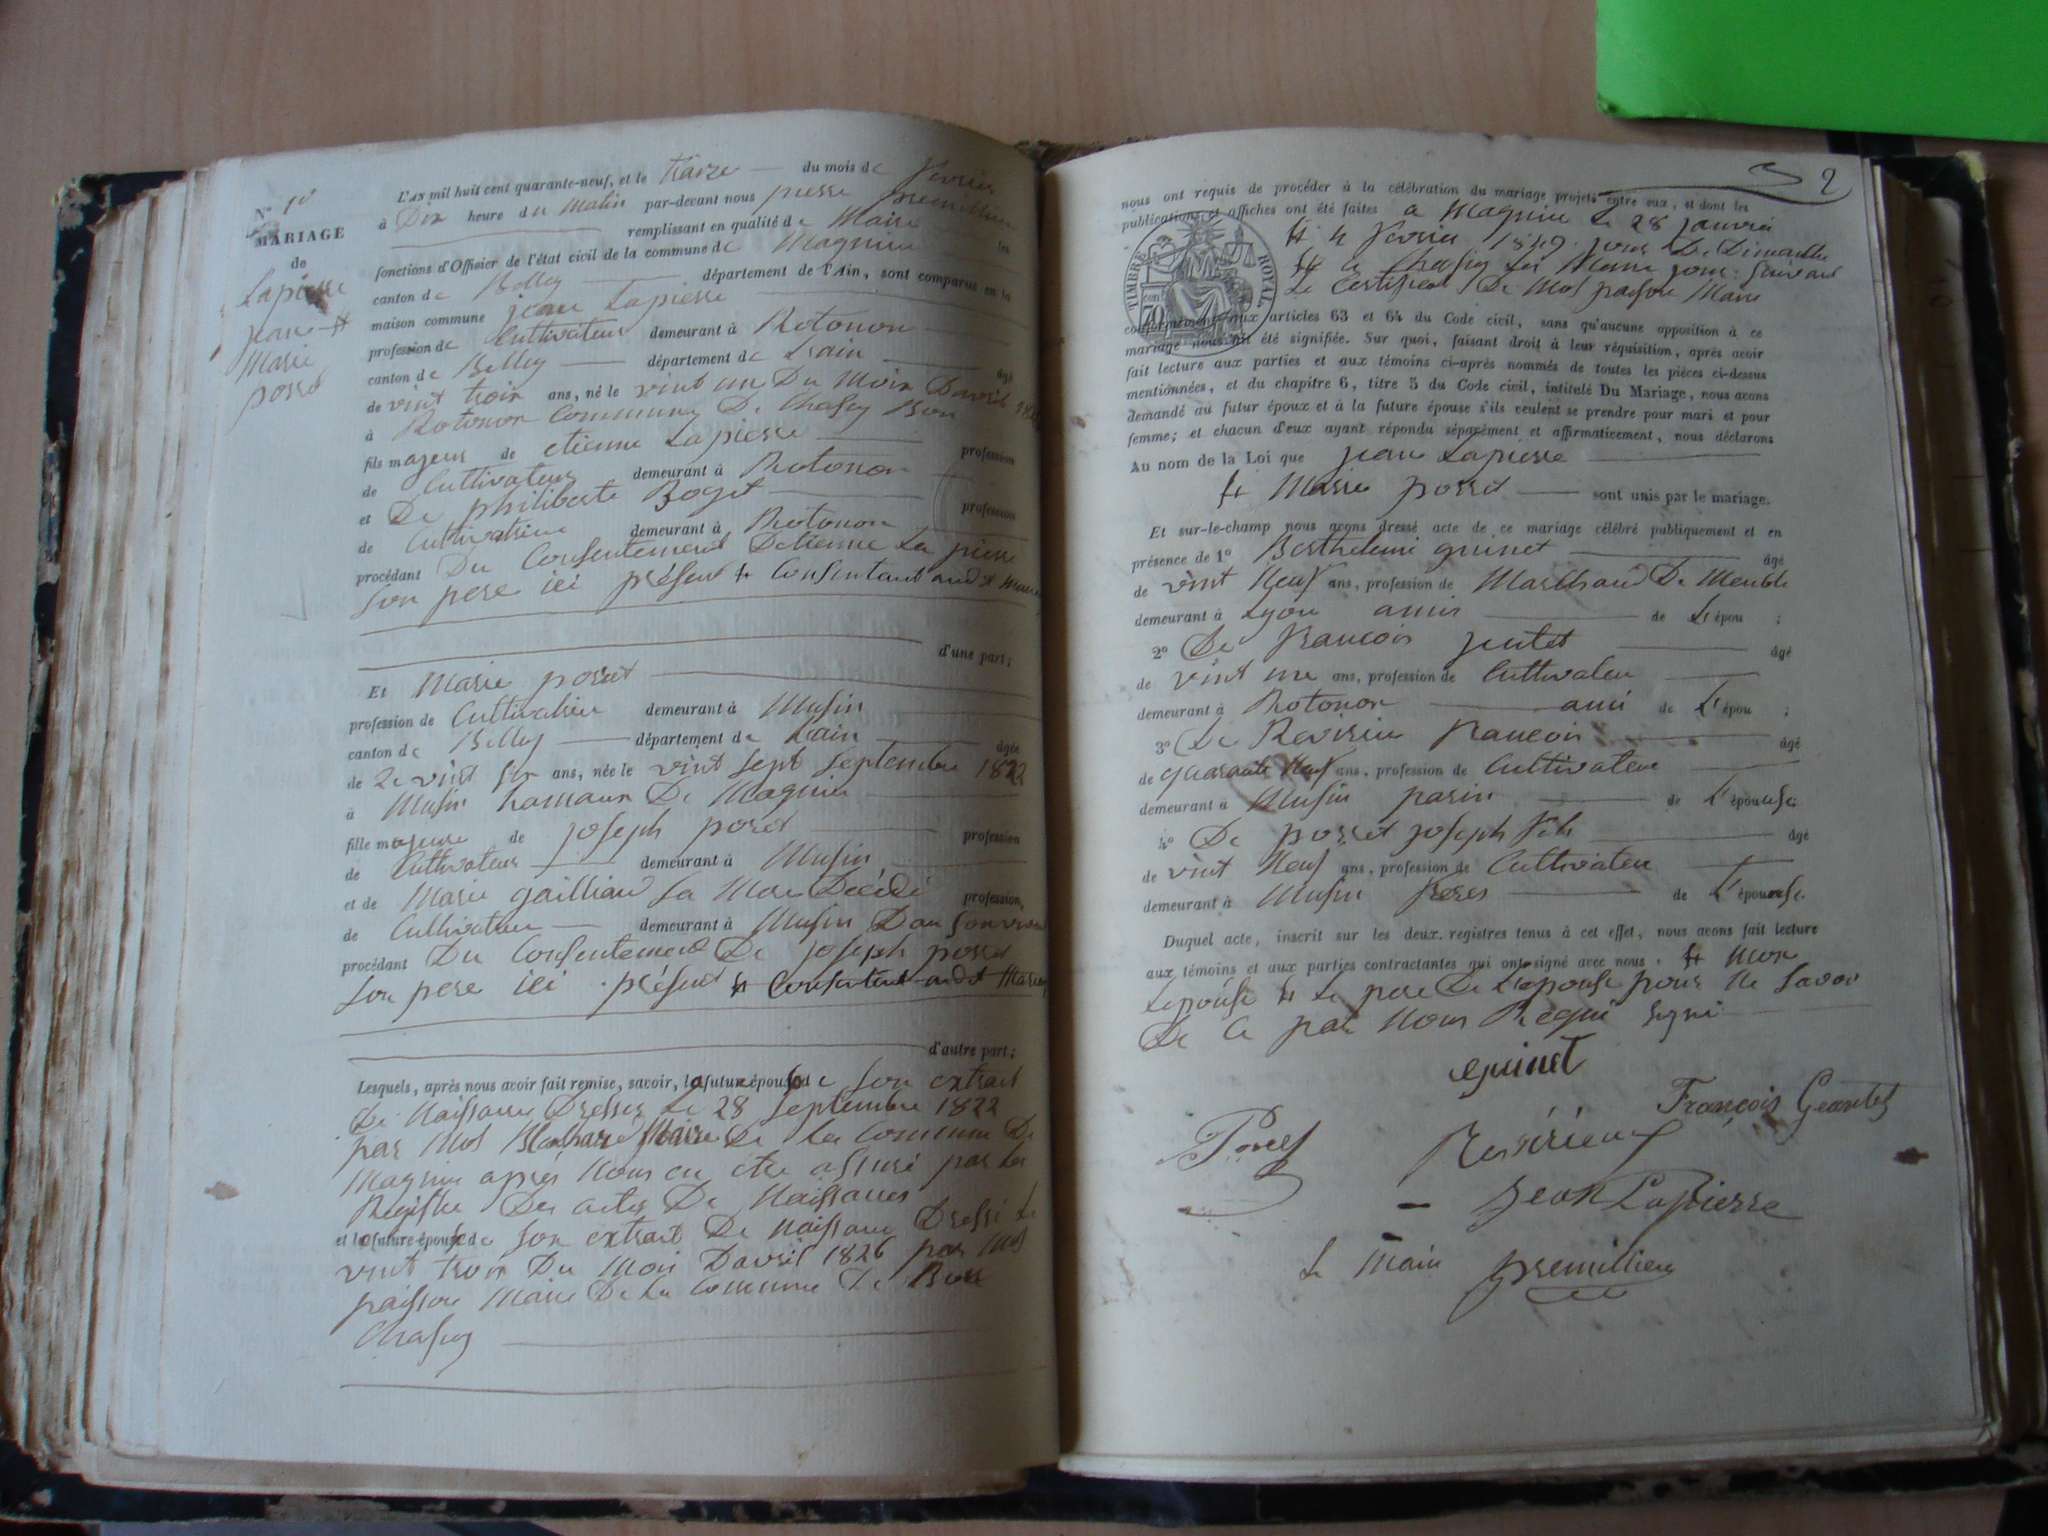 N° 1er
MARIAGE
de
Lapierre
jean et
Marie
porret
L'AN mil huit cent quarante-neuf, et le treize du mois de fevrier
à Dix heure du Matin par-devant nous pierre premillieu
remplissant en qualité de Maire les
fonctions d'Officier de l'état civil de la commune de Magnieu
canton de Belley département de l'Ain, sont comparus en la
maison commune jean Lapierre
profession de Cultivateur demeurant à Rotonon
canton de Belley département de Lain âgé
de vint trois ans, né le vint un Du Mois Davril
à Rotonon Commune De Chasey Bon
fils majeur de etienne Lapierre profession
de Cultivateur demeurant à Rotonon
et De philiberte Boget profession
de Cultivatrice demeurant à Rotonon
procédant Du Consentement Detienne La pierre
son pere ici présent et Consentant audit
d'une part;
Et Marie porret
profession de Cultivatrice demeurant à Musin
canton de Belley département de Lain âgée
de vint six ans, née le vint sept septembre 1822
à Musin hamaux De Magnieu
fille majeure de joseph porret profession
de Cultivateur demeurant à Musin
et de Marie gailliard sa Mere Décédé profession
de Cultivateur demeurant à Musin
procédant Du Consentement De joseph porret
son pere ici présent et Consentent audit
d'autre part;
Lesquels, après nous avoir fait remise, savoir, la future épouse de son extrait
De Naissance Dresser Le 28 septembre 1822
par Maire De La Commune De
Magnieu après Nous en etre assuré par Le
Registre Des actes De Naissances
et future de son extrait De Naissance Dressé Le
vint trois Du Mois Davril 1826 par
Maire De La Commune De
Chasey
2
nous ont requis de procéder à la célébration du mariage projeté entre eux, et dont les
publications et affiches ont été faites a Magnieu Le 28 janvier
et 4 fevrier 1849 jours De Dimanche
et a Chasey Les Meme jour suivant
Le Certificat De Maire
TIMBRE ROYAL
conformément aux articles 63 et 64 du Code civil, sans qu'aucune opposition à ce
mariage nous ait été signifiée. Sur quoi, faisant droit à leur réquisition, après avoir
fait lecture aux parties et aux témoins ci-après nommés de toutes les pièces ci-dessus
mentionnées, et du chapitre 6, titre 5 du Code civil, intitulé Du Mariage, nous avons
demandé au futur époux et à la future épouse s'ils veulent se prendre pour mari et pour
femme; et chacun d'eux ayant répondu séparément et affirmativement, nous déclarons
Au nom de la Loi que jean Lapierre
et Marie porret sont unis par le mariage.
Et sur-le-champ nous avons dressé acte de ce mariage célébré publiquement et en
présence de 1° Berthelemi guinet âgé
de vint Neuf ans, profession de Marchand De Meuble
demeurant à Lyon amis de Le épou ;
2° De francois âgé
de vint une ans, profession de Cultivateu
demeurant à Rotonon ami de L'épou ;
3° De francois âgé
de quarante Neuf ans, profession de Cultivateur
demeurant à Musin parin de L'épouse
4° De porret joseph fils âgé
de vint Neuf ans, profession de Cultivateu
demeurant à Musin freres de L'épouse
Duquel acte, inscrit sur les deux registres tenus à cet effet, nous avons fait lecture
aux témoins et aux parties contractantes qui ont signé avec nous, et Non
Lepouse et Le pere De Lepouse pour Ne savoir
De Ce par Nous Requi signé
guinet
François Geantet
Jean Lapierre
Le Maire premillieu